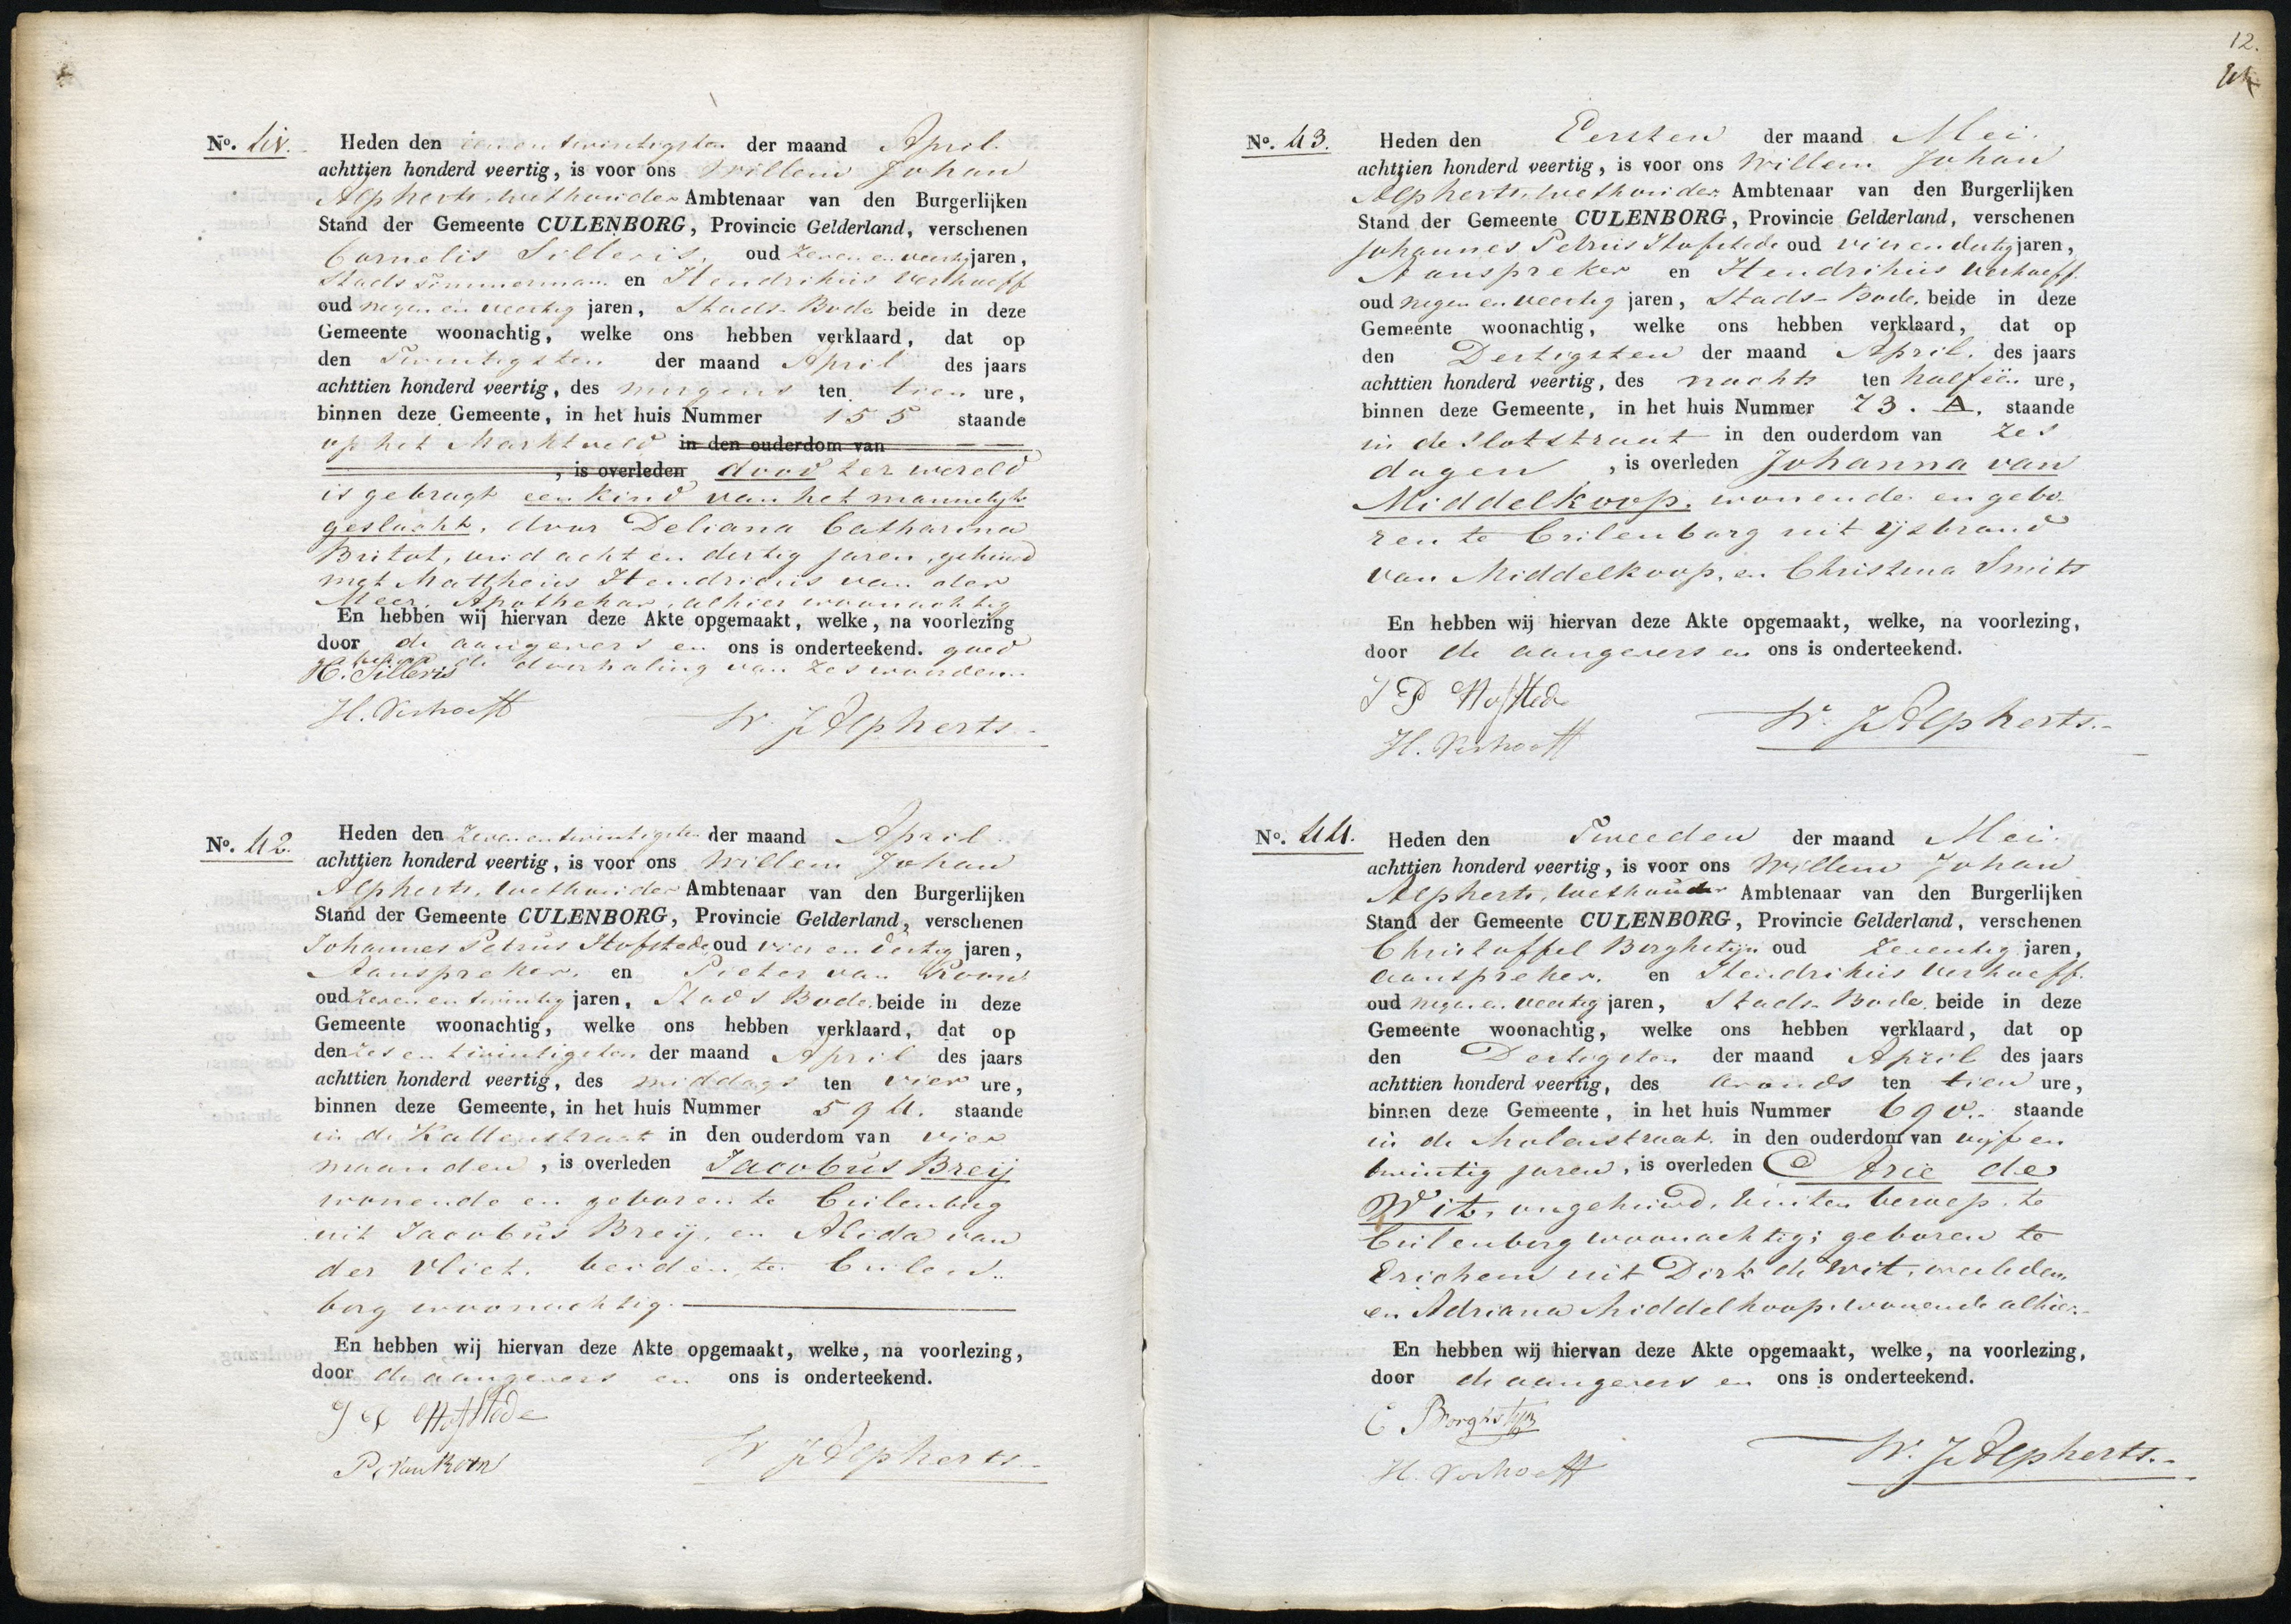 N°. 41.
Heden den een en twintigsten der maand April
achttien honderd veertig, is voor ons Willem Johan
Alpherts, wethouder Ambtenaar van den Burgerlijken
Stand der Gemeente CULENBORG, Provincie Gelderland, verschenen
Cornelis Silleris, oud zeven en veertig jaren,
Stads Timmerman en Hendrikus Verhoeff
oud negen en veertig jaren, Stads Bode beide in deze
Gemeente woonachtig, welke ons hebben verklaard, dat op
den Twintigsten der maand April des jaars
achttien honderd veertig, des morgens ten tien ure,
binnen deze Gemeente, in het huis Nummer 155 staande
op het Marktveld in den ouderdom van
, is overleden dood ter wereld
is gebragt een kind van het mannelijk
geslacht, door Deliana Catharina
Britot, oud acht en dertig jaren, gehuwd
met Mattheus Hendricus van der
Meer, Apotheker, alhier woonachtig
En hebben wij hiervan deze Akte opgemaakt, welke, na voorlezing
door de aangevers en ons is onderteekend. goed
de doorhaling van zes woorden.
H. Silleris
H. Verhoeff
W. J. Alpherts.
N°. 42.
Heden den zeven en twintigsten der maand April
achttien honderd veertig, is voor ons Willem Johan
Alpherts, wethouder Ambtenaar van den Burgerlijken
Stand der Gemeente CULENBORG, Provincie Gelderland, verschenen
Johannes Petrus Hofstede oud vier en dertig jaren,
Aanspreker, en Pieter van Koom
oud zeven en twintig jaren, Stads Bode beide in deze
Gemeente woonachtig, welke ons hebben verklaard, dat op
den zes en twintigsten der maand April des jaars
achttien honderd veertig, des middags ten vier ure,
binnen deze Gemeente, in het huis Nummer 594. staande
in de Kattenstraat in den ouderdom van vier
maanden, is overleden Jacobus Breij
wonende en geboren te Cuilenborg
uit Jacobus Breij, en Alida van
der Vliet, beiden te Cuilen-
borg woonachtig.
En hebben wij hiervan deze Akte opgemaakt, welke, na voorlezing,
door de aangevers en ons is onderteekend.
J P Hofstede
P. van Koom
W. J. Alpherts.
12.
N°. 43.
Heden den Eersten der maand Mei.
achttien honderd veertig, is voor ons Willem Johan
Alpherts, wethouder Ambtenaar van den Burgerlijken
Stand der Gemeente CULENBORG, Provincie Gelderland, verschenen
Johannes Petrus Hofstede oud vier en dertig jaren,
Aanspreker en Hendrikus Verhoeff
oud negen en veertig jaren, Stads-Bode, beide in deze
Gemeente woonachtig, welke ons hebben verklaard, dat op
den Dertigsten der maand April, des jaars
achttien honderd veertig, des nachts ten half een ure,
binnen deze Gemeente, in het huis Nummer 73. A. staande
in de Slotstraat in den ouderdom van zes
dagen, is overleden Johanna van
Middelkoop, wonende en gebo-
ren te Cuilenborg uit Ijsbrand
van Middelkoop, en Christena Smits
En hebben wij hiervan deze Akte opgemaakt, welke, na voorlezing,
door de aangevers en ons is onderteekend.
J P Hofstede
H. Verhoeff
W. J. Alpherts.
N°. 44.
Heden den Tweeden der maand Mei.
achttien honderd veertig, is voor ons Willem Johan
Alpherts, wethouder Ambtenaar van den Burgerlijken
Stand der Gemeente CULENBORG, Provincie Gelderland, verschenen
Christoffel Borghstijn oud zeventig jaren,
aanspreker, en Hendrikus Verhoeff
oud negen en veertig jaren, Stads-Bode, beide in deze
Gemeente woonachtig, welke ons hebben verklaard, dat op
den Dertigsten der maand April des jaars
achttien honderd veertig, des avonds ten tien ure,
binnen deze Gemeente, in het huis Nummer 690. staande
in de Molenstraat, in den ouderdom van vijf en
twintig jaren, is overleden Arie de
Wit, ongehuwd, buiten beroep, te
Cuilenborg woonachtig; geboren te
Erichem uit Dirk de Wit, overleden,
en Adriana Middelkoop, wonende alhier.
En hebben wij hiervan deze Akte opgemaakt, welke, na voorlezing,
door de aangevers en ons is onderteekend.
C Borghstijn
H. Verhoeff
W. J. Alpherts.